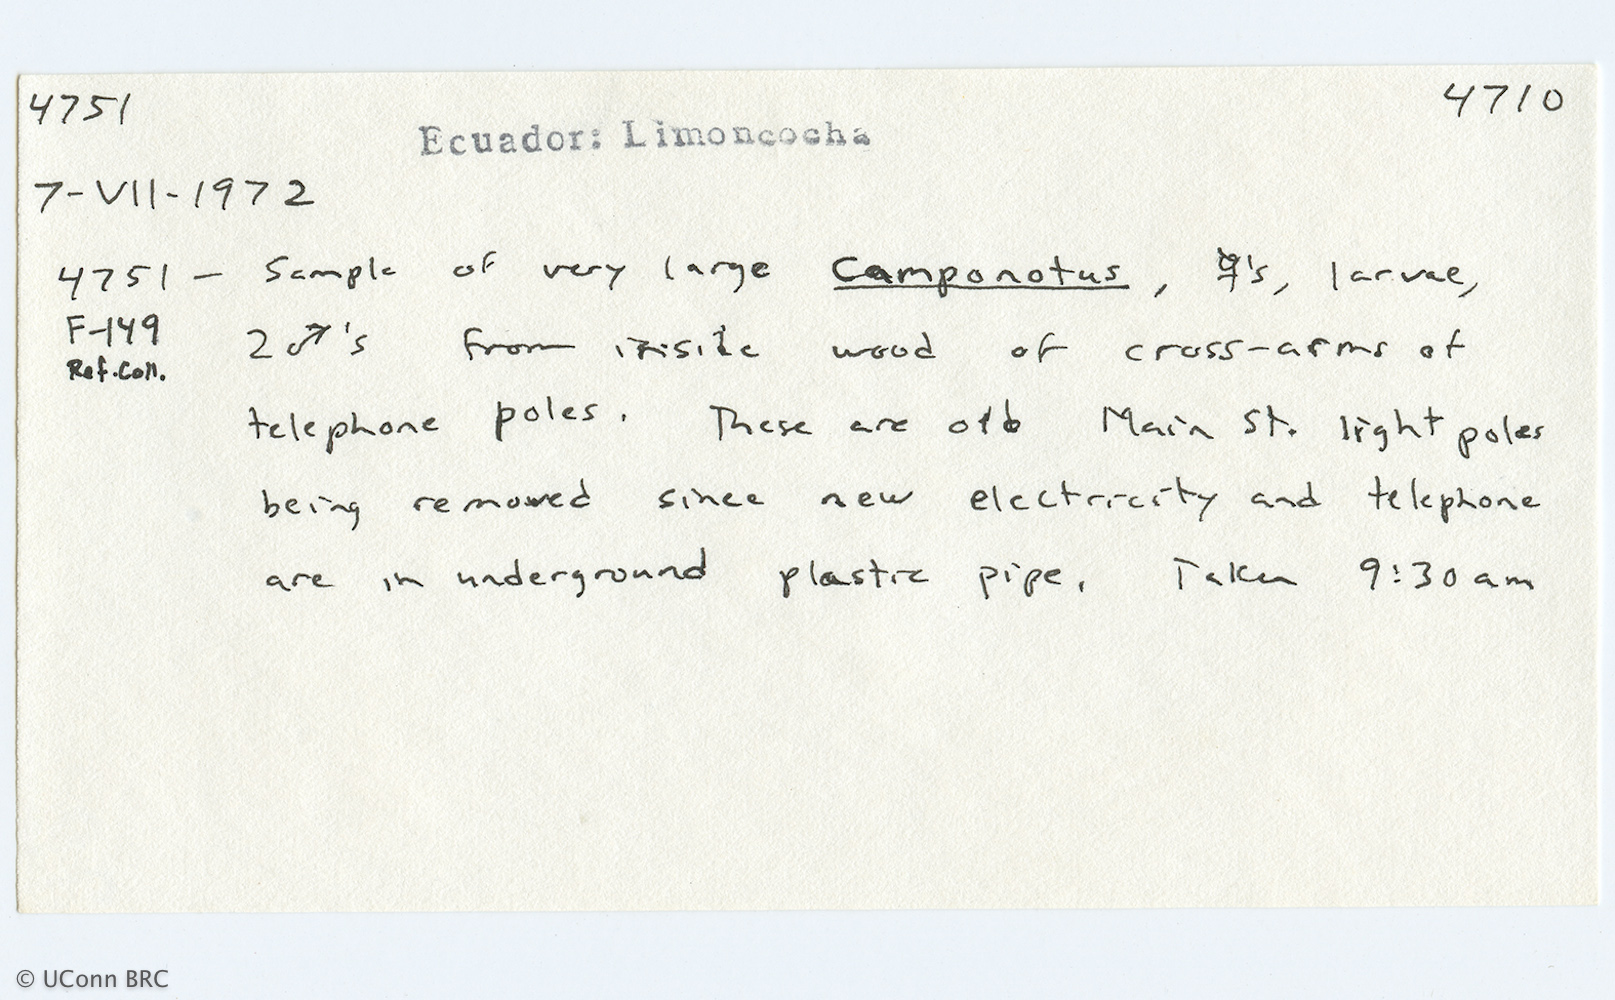 4751 4710
Ecuador: Limoncocha
7-VII-1972
4751 – Sample of very large Camponotus, ☿'s, larvae,
F-149 2♂'s from inside wood of cross-arms of
Ref. Coll.
telephone poles. These are old Main St. light poles
being removed since new electricity and telephone
are in underground plastic pipe. Taken 9:30 am
© UConn BRC